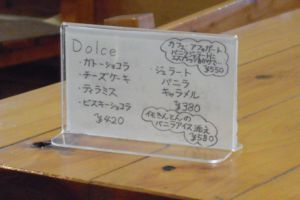 Dolce
・ガトーショコラ
・チーズケーキ
・ティラミス
・ビスキーショコラ
¥420
カフェ アフォガート
バニラアイスに
エスプレッソをかけて…
¥550
・ジェラート
バニラ
キャラメル
¥380
イモきんとんの
バニラアイス添え
¥580